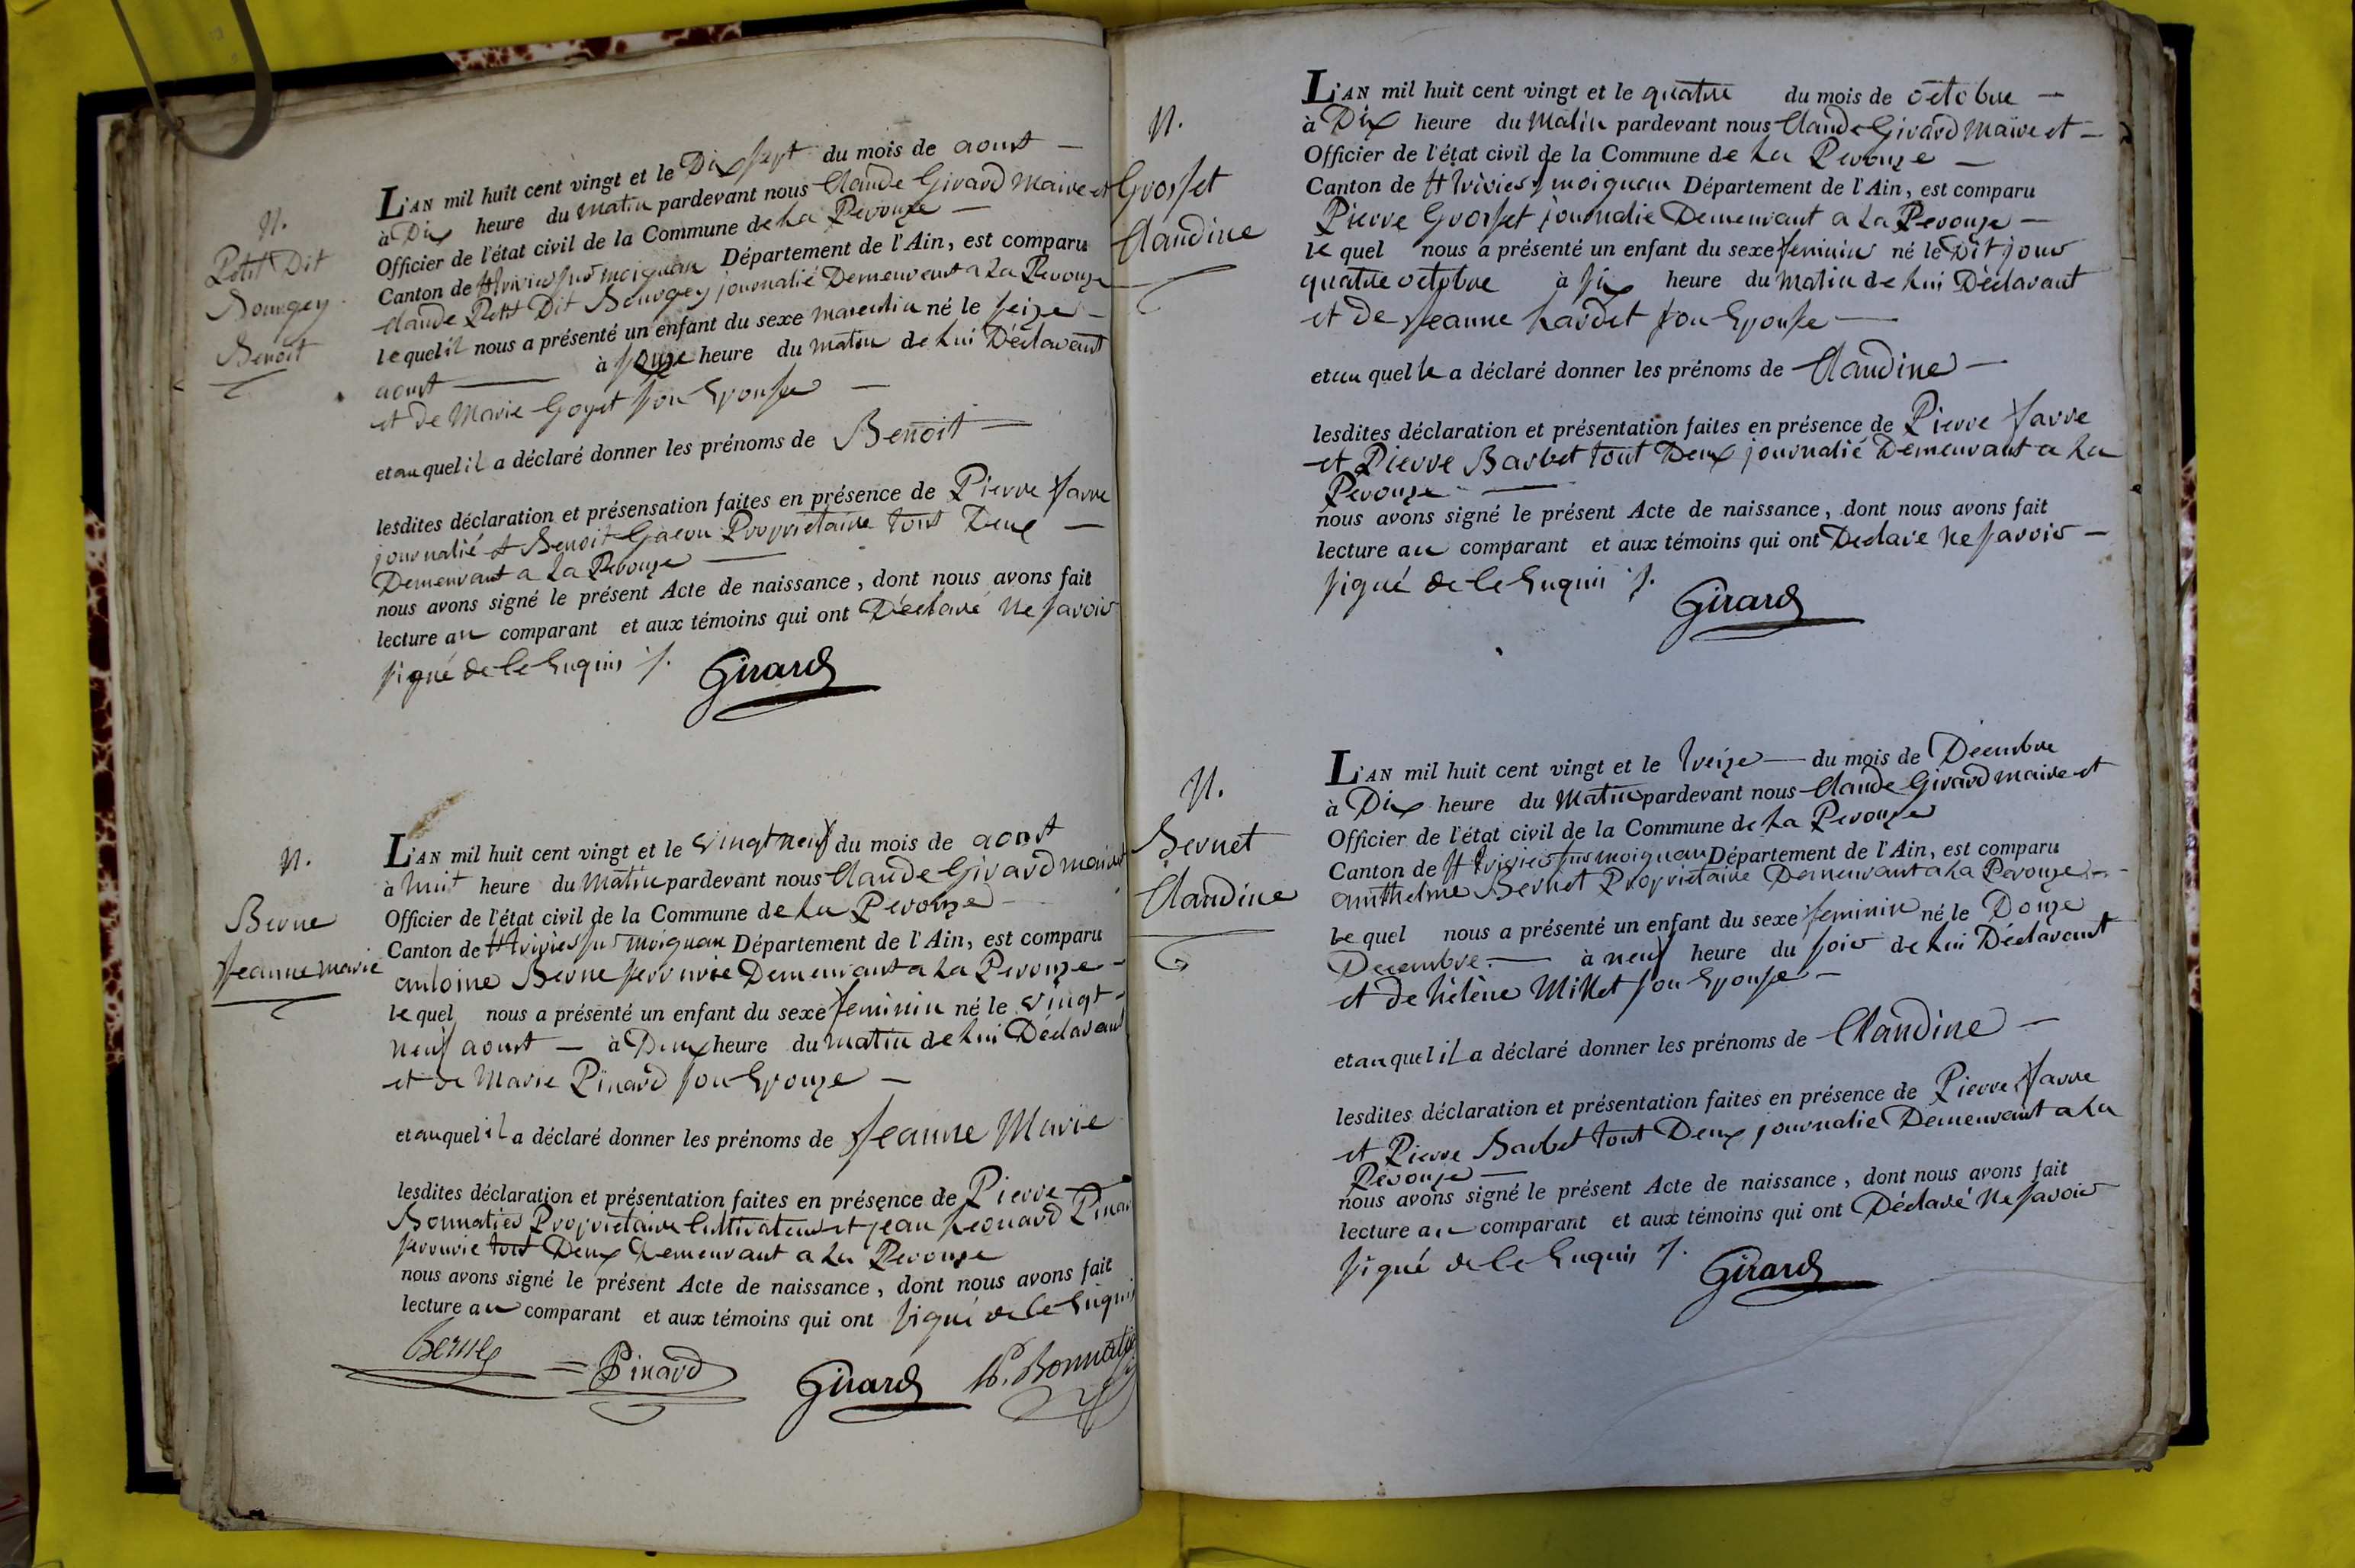 N.
Petit Dit
Bourgey
Benoit
L'AN mil huit cent vingt et le Dix sept du mois de aoust
à Dix heure du matin pardevant nous Claude Girard Maire et
Officier de l'état civil de la Commune de La Perouze
Canton de St trivier sur moignan Département de l'Ain, est comparu
Claude Petit Dit Bourgey journalié Demeurant a La Perouze
lequel il nous a présenté un enfant du sexe masculin né le seize
aoust à onze heure du matin de lui Déclarant
et de Marie Goyet son Epouse
et auquel il a déclaré donner les prénoms de Benoit
lesdites déclaration et présensation faites en présence de Pierre Favre
journalié et Benoit Gacon Proprietaire tout Deux
Demeurant a La Perouze
nous avons signé le présent Acte de naissance, dont nous avons fait
lecture au comparant et aux témoins qui ont Déclaré Ne savoir
signé de ce Enquis ./.
Girard
N.
Berne
Jeanne marie
L'AN mil huit cent vingt et le vingt neuf du mois de aoust
à huit heure du Matin pardevant nous Claude Girard maire et
Officier de l'état civil de la Commune de La Perouze
Canton de St trivier sur moignan Département de l'Ain, est comparu
antoine Berne serrurie Demeurant a La Perouze
lequel nous a présenté un enfant du sexe feminin né le vingt
neuf aoust à Deux heure du matin de lui Déclarant
et de Marie Pinard son Epouze
et auquel il a déclaré donner les prénoms de Jeanne Marie
lesdites déclaration et présentation faites en présence de Pierre
Bonnatier Proprietaire Cultivateur et jean Leonard Pinar
serrurie tout Deux Demeurant a La Perouze
nous avons signé le présent Acte de naissance, dont nous avons fait
lecture au comparant et aux témoins qui ont signé de ce Enquis
Berne Pinard Girard P. Bonnatie
N.
Grosset
Claudine
L'AN mil huit cent vingt et le quatre du mois de octobre
à Dix heure du Matin pardevant nous Claude Girard Maire et
Officier de l'état civil de la Commune de La Perouze
Canton de St trivier s moignan Département de l'Ain, est comparu
Pierre Grosset journalie Demeurant a La Perouze
lequel nous a présenté un enfant du sexe feminin né le Dit jour
quatre octobre à six heure du Matin de lui Déclarant
et de Jeanne Lardet son Epouse
et au quelle a déclaré donner les prénoms de Claudine
lesdites déclaration et présentation faites en présence de Pierre Favre
et Pierre Barbet tout Deux journalié Demeurant a La
Perouze
nous avons signé le présent Acte de naissance, dont nous avons fait
lecture au comparant et aux témoins qui ont Declaré Ne savoir
signé de ce Enquis ./.
Girard
N.
Bernet
Claudine
L'AN mil huit cent vingt et le treize du mois de Décembre
à Dix heure du Matin pardevant nous Claude Girard maire et
Officier de l'état civil de la Commune de La Perouze
Canton de St trivier sur moignan Département de l'Ain, est comparu
amthelme Bernet Proprietaire Demeurant a La Perouze
lequel nous a présenté un enfant du sexe feminin né le Douze
Decembre à neuf heure du soir de lui Déclarant
et de hélène Millet son Epouse
et auquel il a déclaré donner les prénoms de Claudine
lesdites déclaration et présentation faites en présence de Pierre Favre
et Pierre Barbet tout Deux journalie Demeurant a La
Perouze
nous avons signé le présent Acte de naissance, dont nous avons fait
lecture au comparant et aux témoins qui ont Déclaré Ne savoir
signé de ce Enquis ./.
Girard